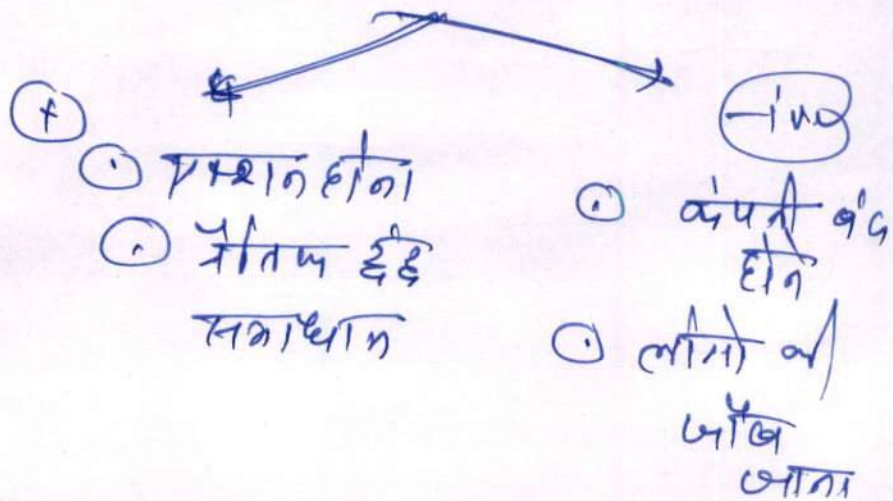 (+)
⊙ एक्शन होना
⊙ नैतिक द्वंद्व
समाधान
-ive
⊙ कंपनी बंद
होना
⊙ लोगों की
जॉब
जाना